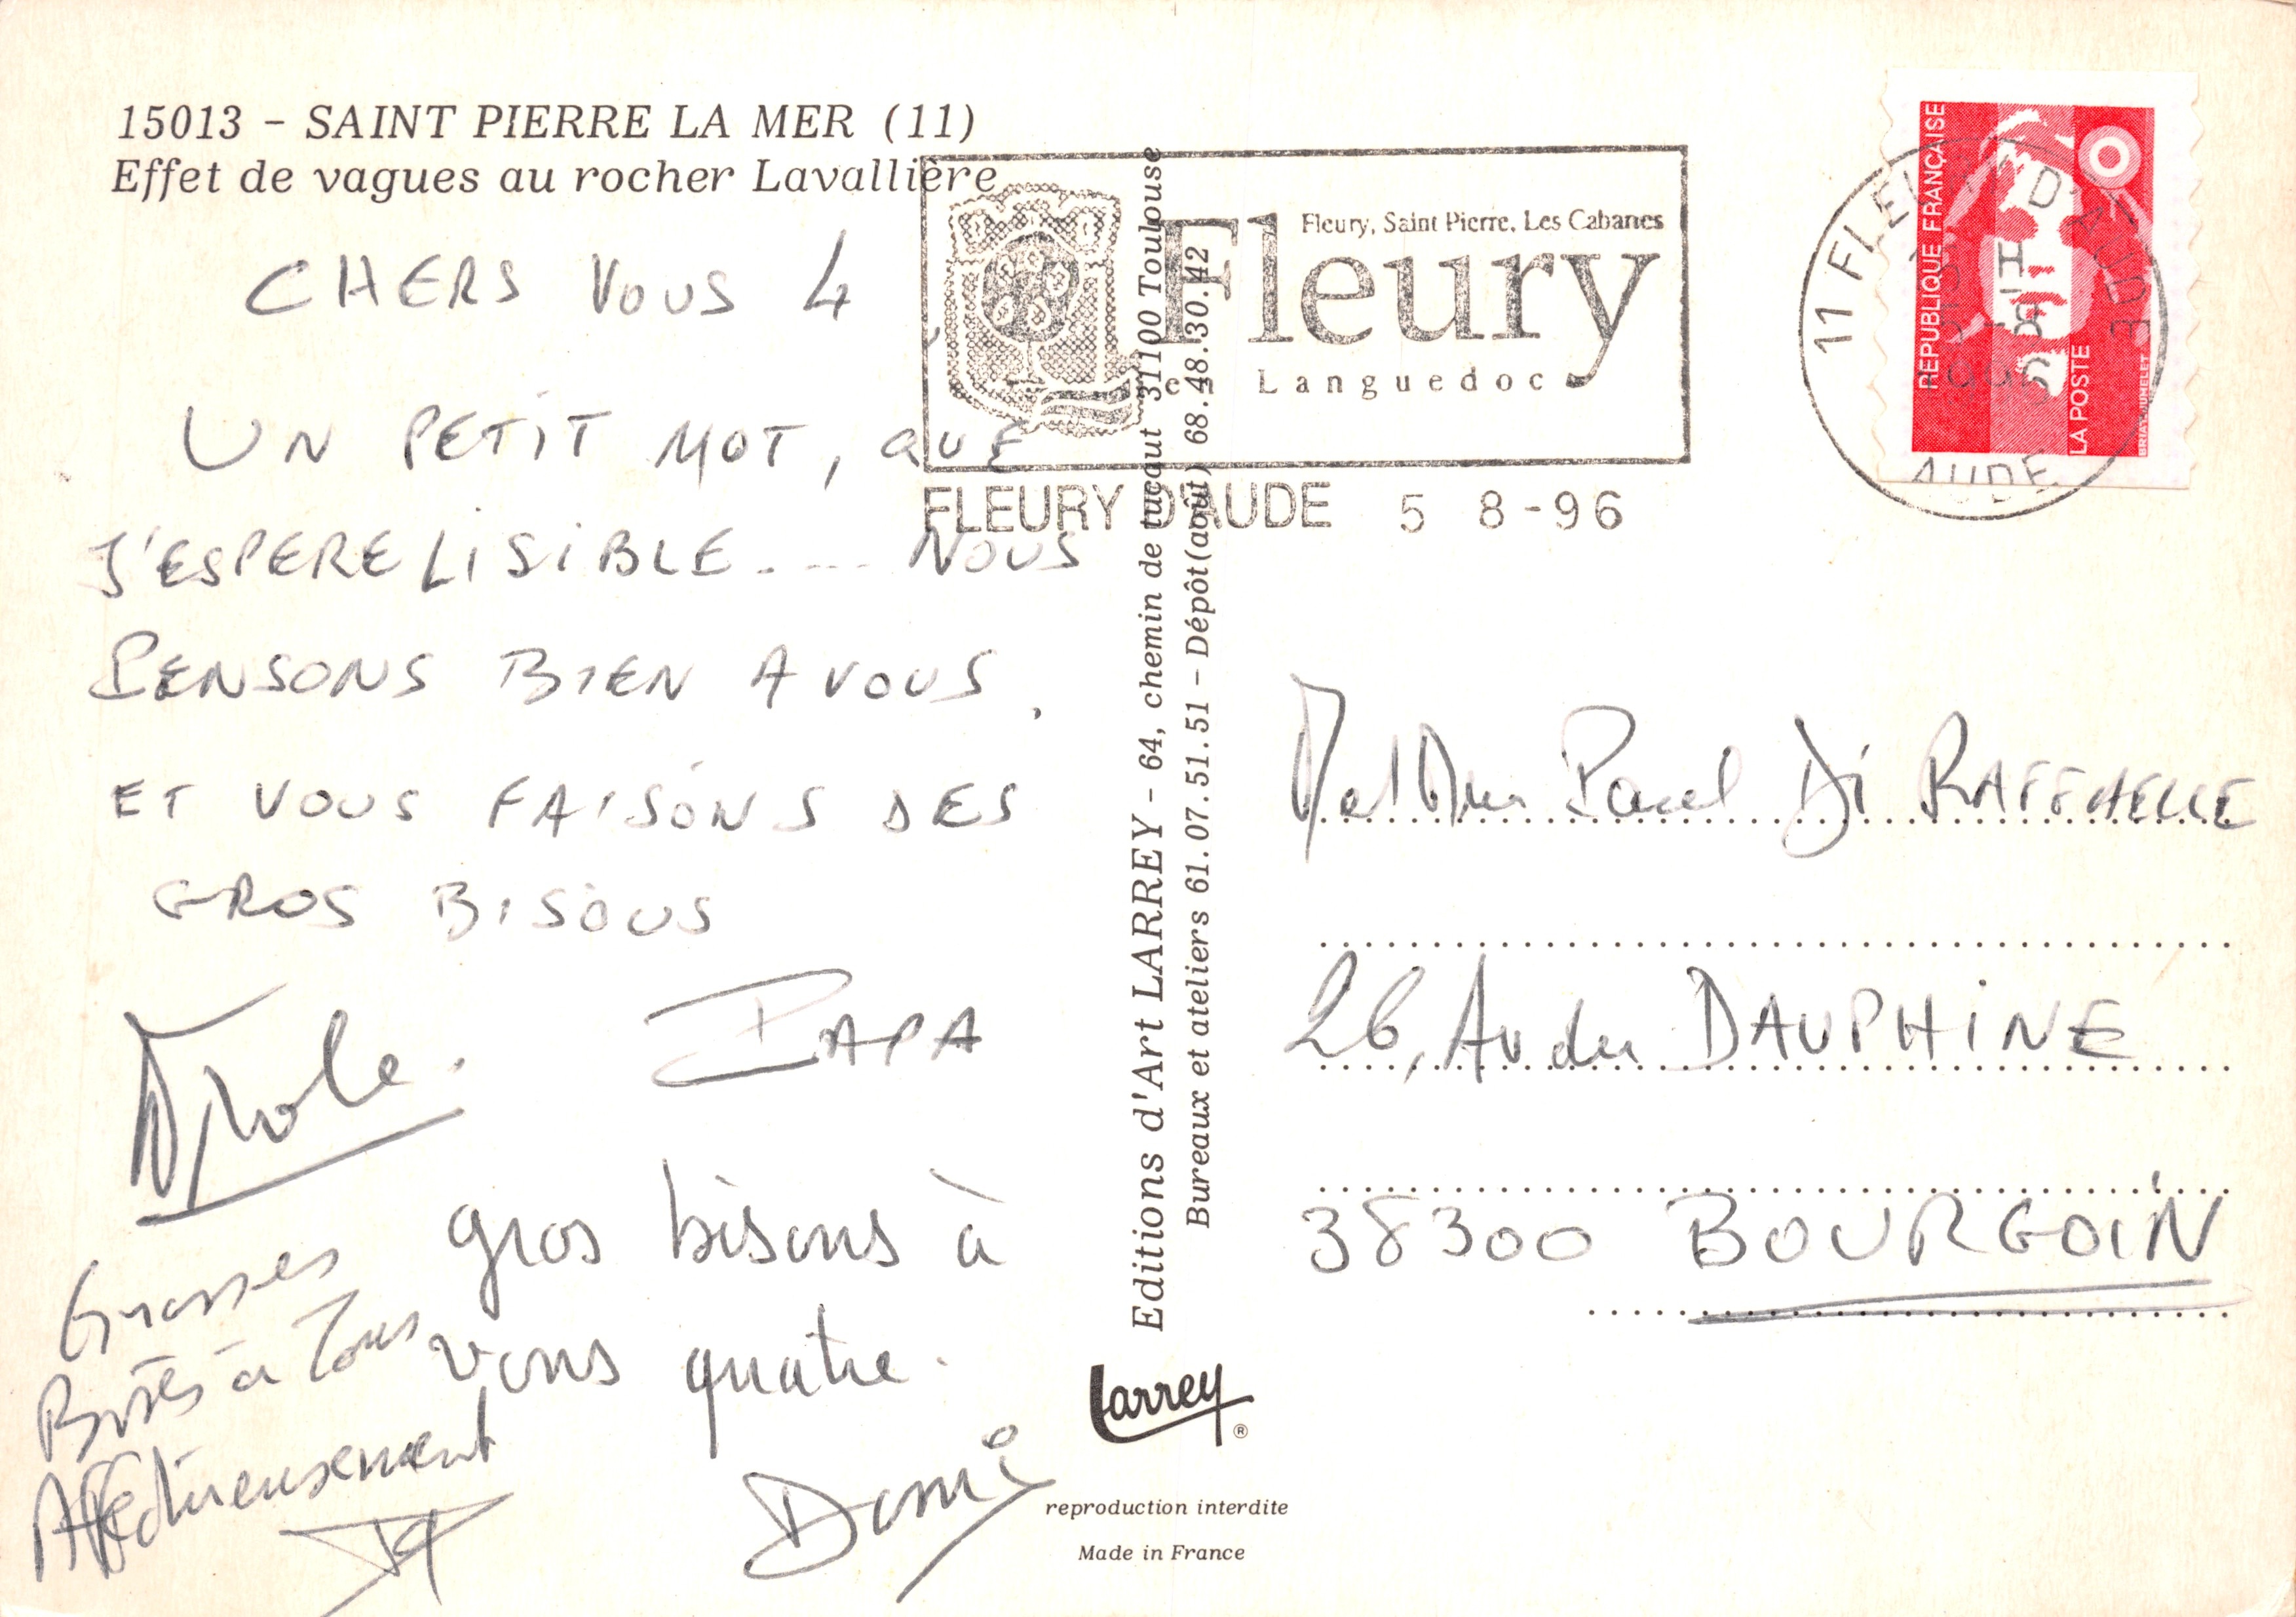 15013 - SAINT PIERRE LA MER (11)
Effet de vagues au rocher Lavallière
CHERS VOUS 4,
UN PETIT MOT, QUE
J'ESPERE LISIBLE.... NOUS
PENSONS BIEN A VOUS,
ET VOUS FAISONS DES
GROS BISOUS
PAPA
gros bisous à
vous quatre.
Domi
Grosses
Bises à Tous
Affectueusement
Fleury, Saint Pierre, Les Cabanes
Fleury
en Languedoc
FLEURY D'AUDE 5 8-96
11 FLEURY D'AUDE
AUDE
REPUBLIQUE FRANÇAISE
LA POSTE
BRIAT-JUMELET
Editions d'Art LARREY - 64, chemin de tucaut 31100 Toulouse
Bureaux et ateliers 61.07.51.51 - Dépôt (août) 68.48.30.42
Paul Di RAFFAELLE
26, Av du DAUPHINE
38300 BOURGOIN
Larrey ®
reproduction interdite
Made in France